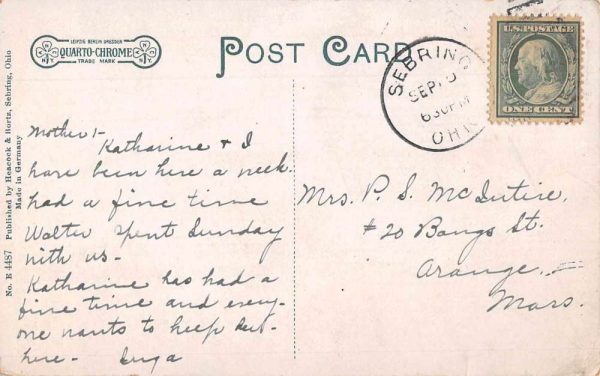 LEIPZIG BERLIN DRESDEN
QUARTO-CHROME
TRADE MARK
POST CARD
SEBRING
SEP
630 PM
OHIO
U.S. POSTAGE
ONE CENT
No. E 4487 Published by Heacock & Hortz, Sebring, Ohio
Made in Germany
Mother:-
Katharine & I
have been here a week.
had a fine time
Walter spent Sunday
with us-
Katharine has had a
fine time and every-
one wants to keep her
here-
Mrs. P. S. McIntire,
#20 Bangs St.
Orange,
Mass.